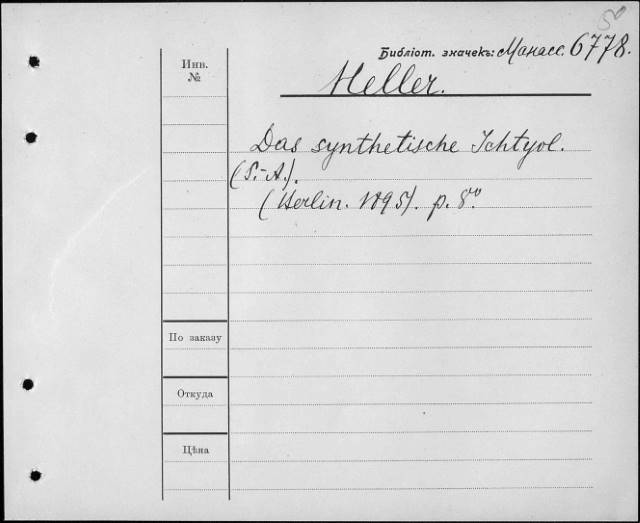 50
Библіот. значекъ: Манасс. 6778.
Инв.
№
Heller.
Das synthetische Ichtyol.
(S.-A.).
(Berlin. 1895). p. 8º.
По заказу
Откуда
Цѣна